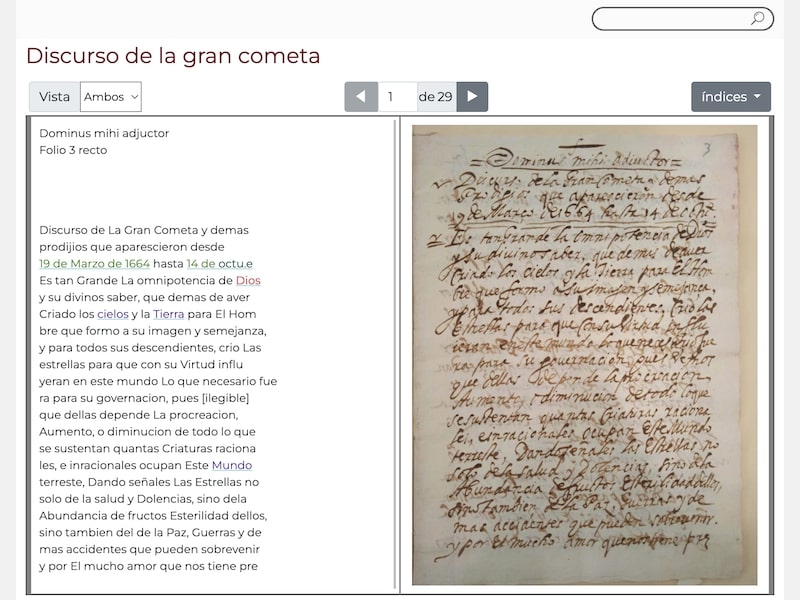 Discurso de la gran cometa
Vista
Ambos
1
de 29
índices
Dominus mihi adjuctor
Folio 3 recto
Discurso de La Gran Cometa y demas
prodijios que aparescieron desde
19 de Marzo de 1664 hasta 14 de octu.e
Es tan Grande La omnipotencia de Dios
y su divinos saber, que demas de aver
Criado los cielos y la Tierra para El Hom
bre que formo a su imagen y semejanza,
y para todos sus descendientes, crio Las
estrellas para que con su Virtud influ
yeran en este mundo Lo que necesario fue
ra para su governacion, pues [ilegible]
que dellas depende La procreacion,
Aumento, o diminucion de todo lo que
se sustentan quantas Criaturas raciona
les, e inracionales ocupan Este Mundo
terreste, Dando señales Las Estrellas no
solo de la salud y Dolencias, sino dela
Abundancia de fructos Esterilidad dellos,
sino tambien del de la Paz, Guerras y de
mas accidentes que pueden sobrevenir
y por El mucho amor que nos tiene pre
3
Discurso de la Gran Cometa y demas
que aparescieron desde
19 de Março de 1664 hasta 14 de
Es tan Grande la omnipotencia de Dios
y su divino saber, que demas de aver
Criado los cielos y la Tierra para El Hom
bre que formo a su imagen y semejança,
y para todos sus descendientes, Crio las
Estrellas para que con su Virtud influ
yeran en este mundo lo que necesario fue
ra para su governacion, pues
que dellas depende la procreacion
Aumento, o diminucion de todo lo que
se sustentan quantas Criaturas raciona
les, e inracionales ocupan Este Mundo
terreste, Dando señales las Estrellas no
solo de la salud y Dolencias, sino dela
Abundancia de fructos Esterilidad dellos,
sino tambien de la Paz, Guerras y de
mas accidentes que pueden sobrevenir.
y por El mucho amor que nos tiene pre